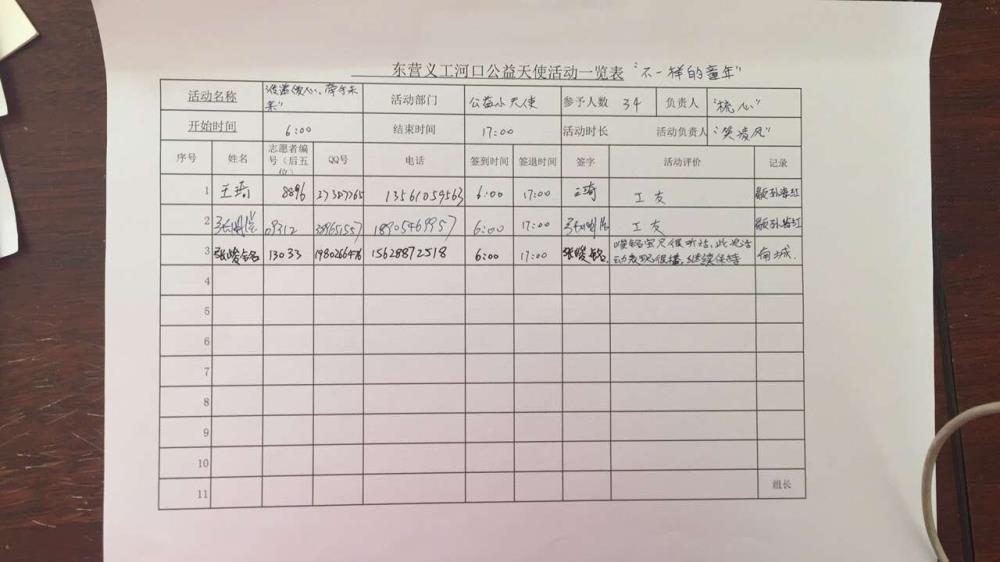 东营义工河口公益天使活动一览表 "不一样的童年"
活动名称 活动部门 公益小天使 参予人数 34 负责人
开始时间 6:00 结束时间 17:00 活动时长 活动负责人 "笑凌风"
序号 姓名 志愿者编号（后五位） QQ号 电话 签到时间 签退时间 签字 活动评价 记录
1 王琦 8896 13561059563 6:00 17:00 王琦 工友
2 09312 18905469957 6:00 17:00 工友
3 张峻铭 13033 1980266476 15628872518 6:00 17:00 张峻铭 峻铭宝贝很听话,此次活动表现很棒,继续保持
4
5
6
7
8
9
10
11 组长